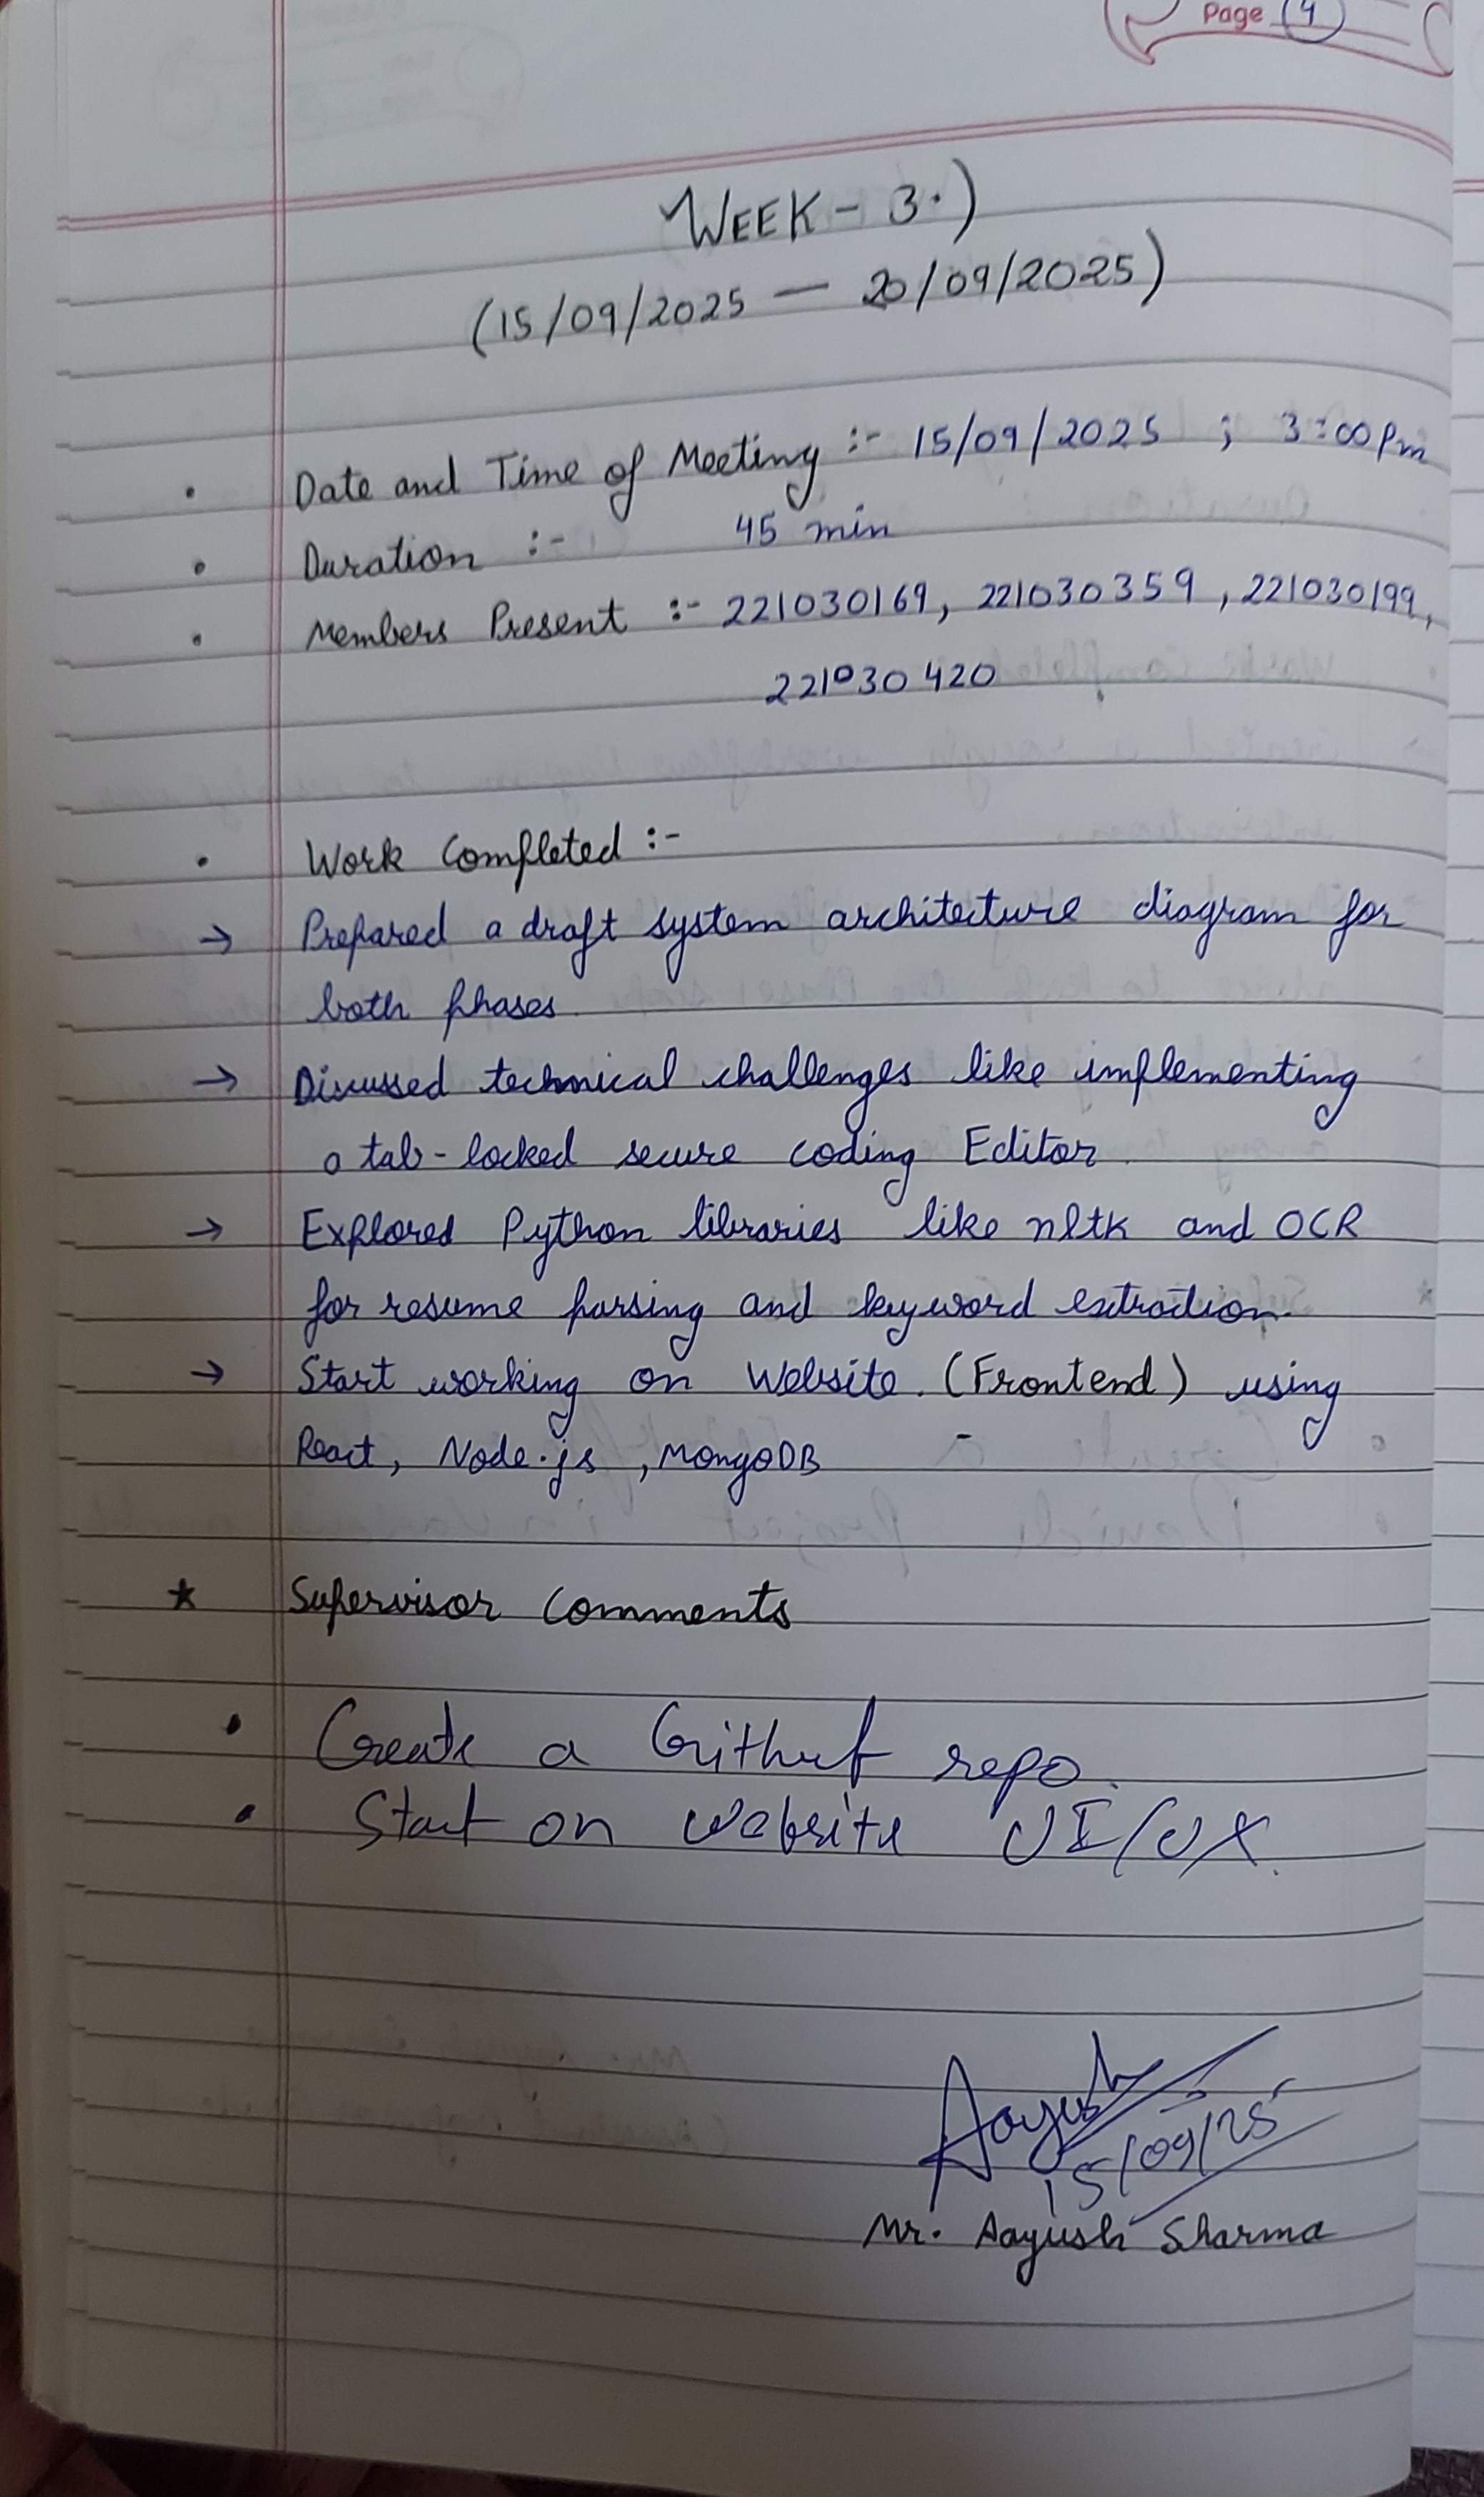 Page 4
WEEK - 3.)
(15/09/2025 — 20/09/2025)
• Date and Time of Meeting :- 15/09/2025 ; 3:00 Pm
• Duration :- 45 min
• Members Present :- 221030169, 221030359, 221030199,
221030420
• Work Completed :-
→ Prepared a draft system architecture diagram for
both phases.
→ Discussed technical challenges like implementing
a tab-locked secure coding Editor.
→ Explored Python libraries like nltk and OCR
for resume parsing and keyword extraction.
→ Start working on Website. (Frontend) using
React, Node.js, MongoDB
★ Supervisor Comments
• Create a Github repo.
• Start on website UI/UX.
Aayush
15/09/25
Mr. Aayush Sharma